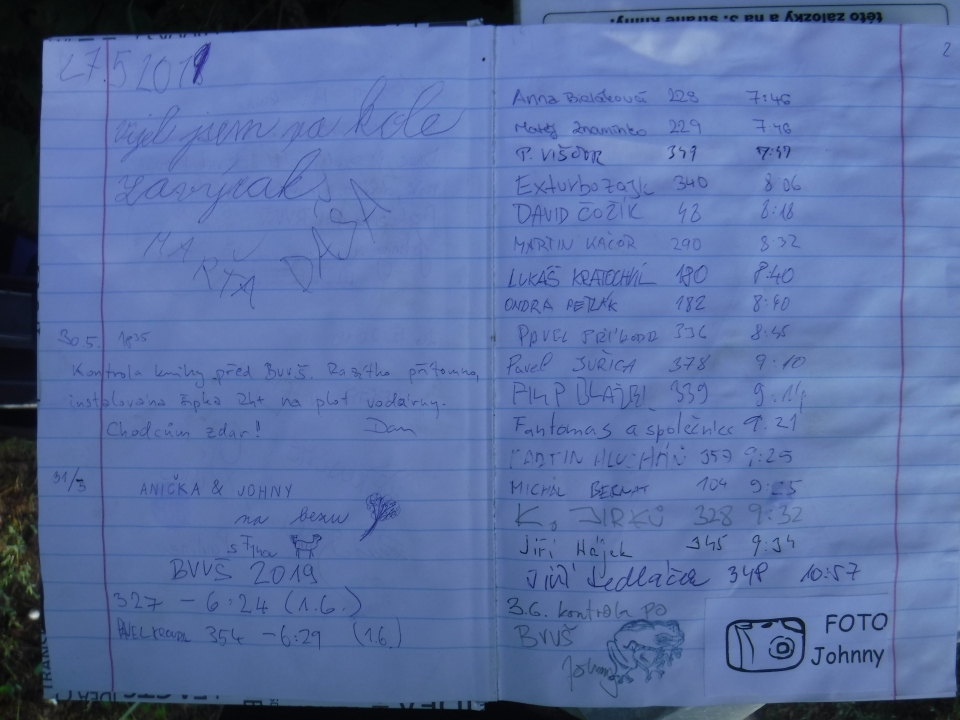 27.5 2019
jsem na kole
MAR
TA DÁŠA
30.5. 18 35
Kontrola knihy před BVVŠ. Razítko přítomno,
instalována šipka 24+ na plot vodárny.
Chodcům zdar! Dan
31/5
ANIČKA & JOHNY
na bezu
BVVŠ 2019
327 – 6:24 (1.6.)
PAVEL 354 – 6:29 (1.6.)
2
Anna 228 7:46
Matěj Znamínko 229 7:46
P. VIŠCOR 347 7:47
Exturbozajíc 340 8:06
DAVID ČOŽÍK 48 8:18
MARTIN KAČOR 290 8:32
LUKÁŠ KRATOCHVÍL 180 8:40
ONDRA PETLÁK 182 8:40
PAVEL 336 8:45
Pavel JUŘICA 378 9:10
FILIP 339 9:14
Fantomas a společnice 9:21
MARTIN 357 9:25
MICHAL BERNAT 104 9:25
K. JIRKŮ 328 9:32
Jiří Hájek 345 9:34
Jiří Sedláček 348 10:57
3.6. kontrola po
BVVŠ
Johny
FOTO
Johnny
této záložky a na 3. straně knihy.